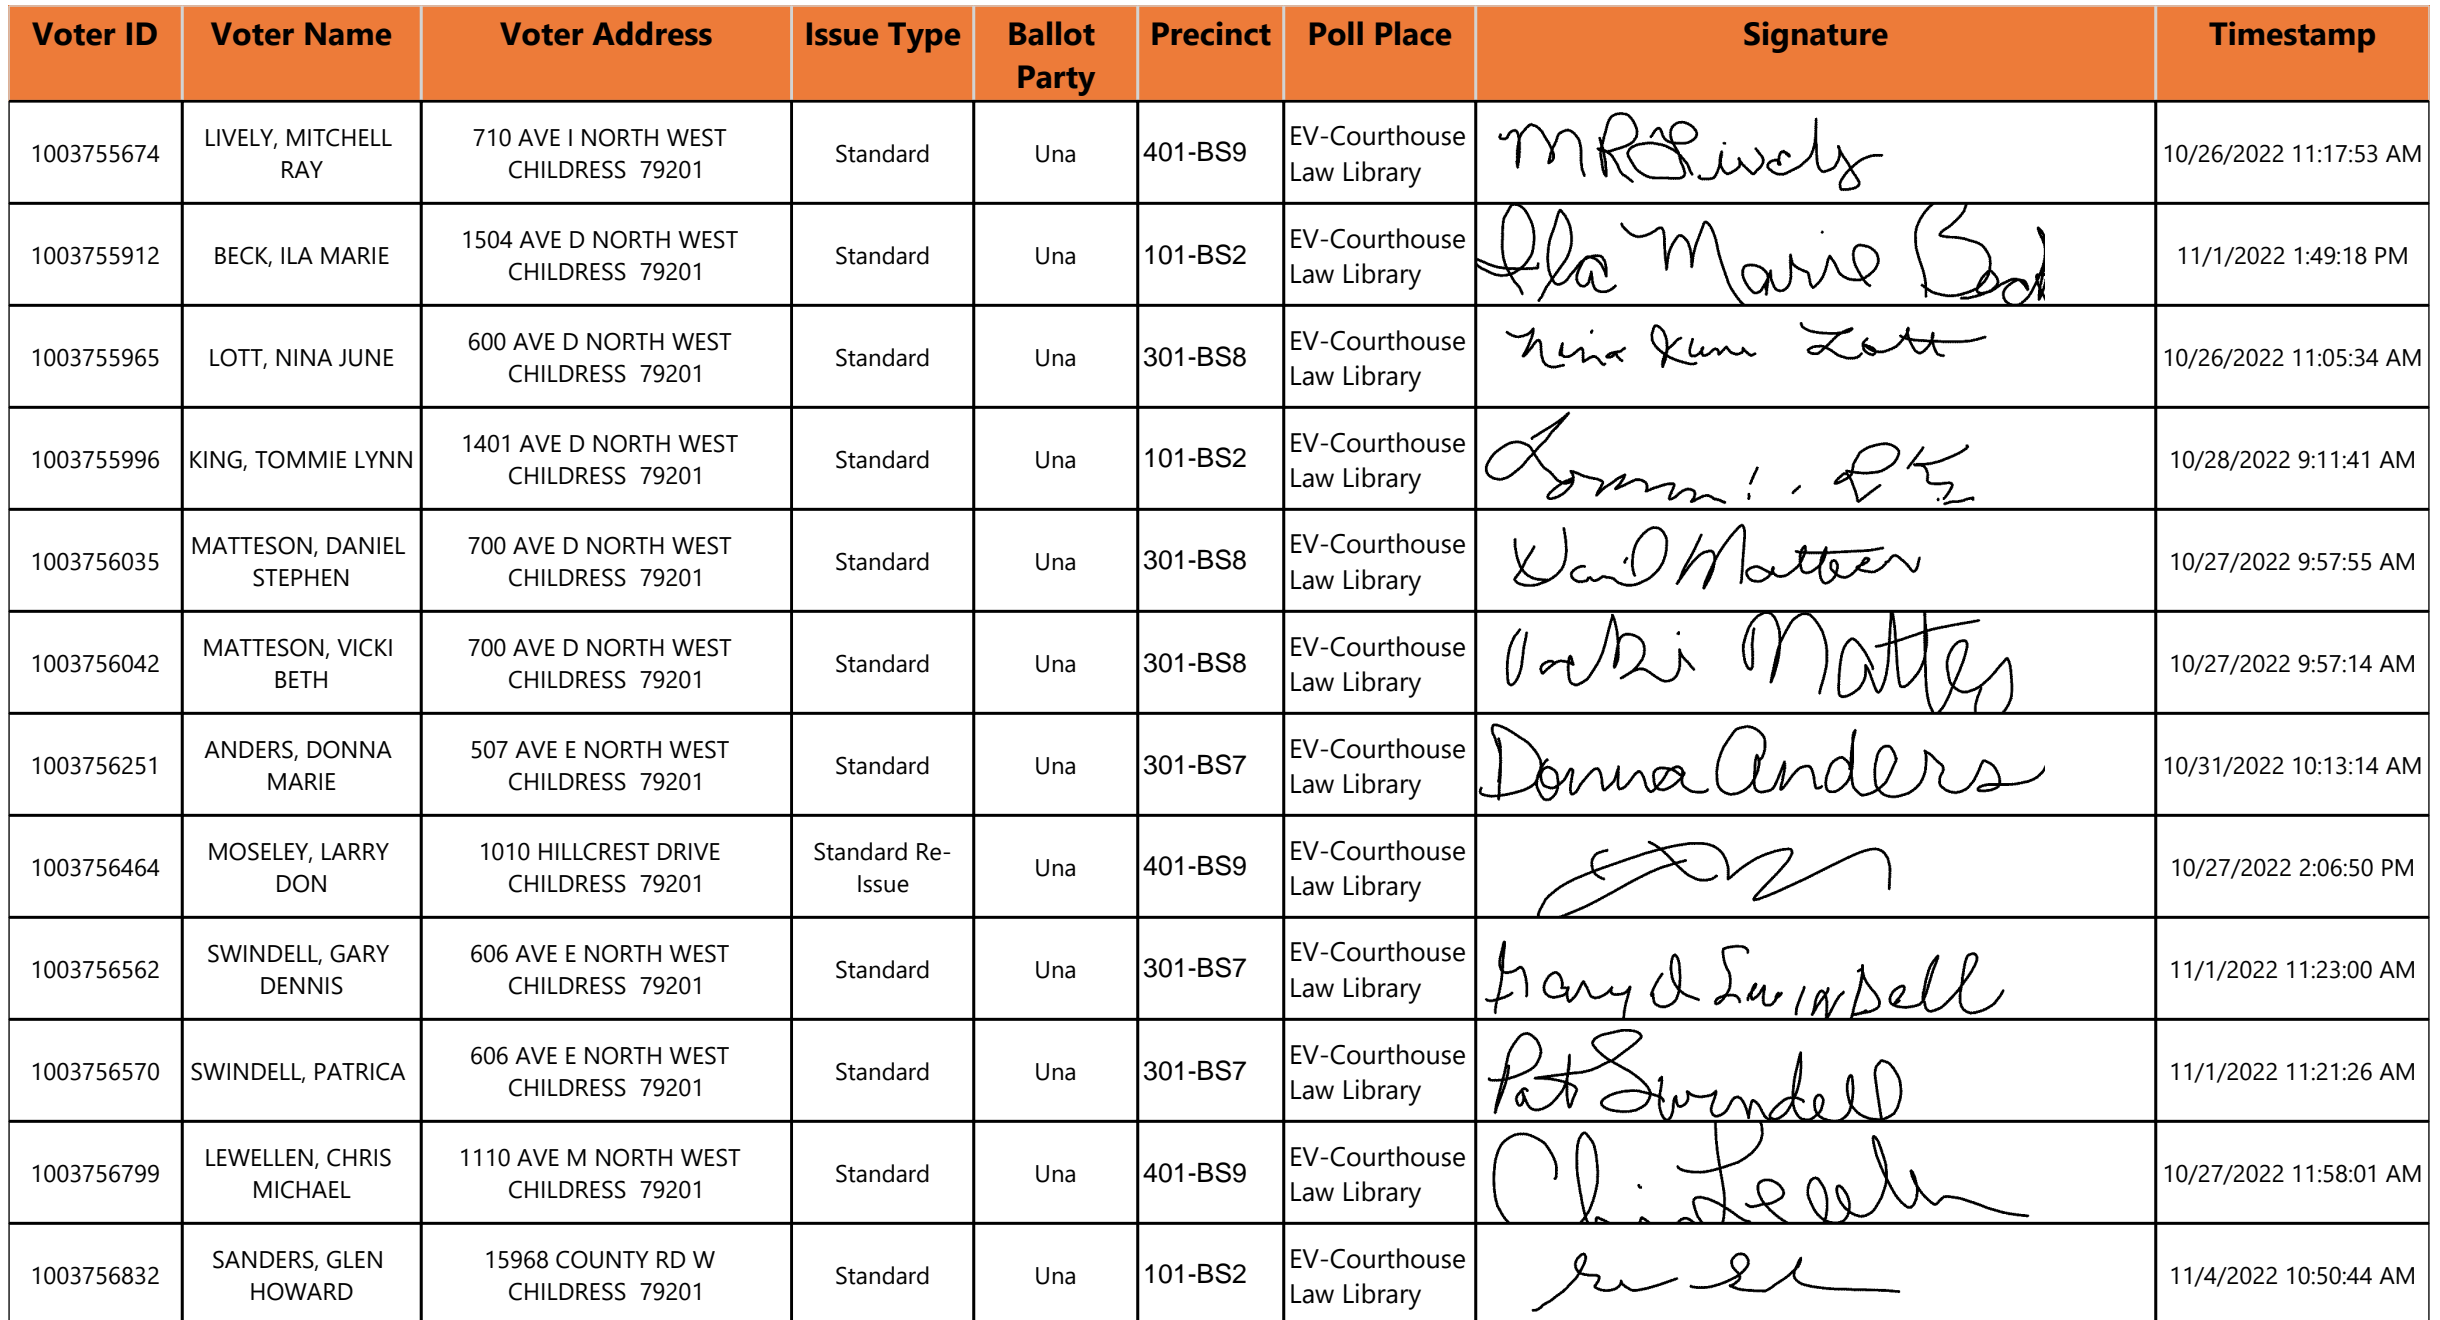 Voter ID Voter Name Voter Address Issue Type Ballot Party Precinct Poll Place Signature Timestamp
1003755674 LIVELY, MITCHELL RAY 710 AVE I NORTH WEST CHILDRESS 79201 Standard Una 401-BS9 EV-Courthouse Law Library M R Lively 10/26/2022 11:17:53 AM
1003755912 BECK, ILA MARIE 1504 AVE D NORTH WEST CHILDRESS 79201 Standard Una 101-BS2 EV-Courthouse Law Library Ila Marie Beck 11/1/2022 1:49:18 PM
1003755965 LOTT, NINA JUNE 600 AVE D NORTH WEST CHILDRESS 79201 Standard Una 301-BS8 EV-Courthouse Law Library Nina June Lott 10/26/2022 11:05:34 AM
1003755996 KING, TOMMIE LYNN 1401 AVE D NORTH WEST CHILDRESS 79201 Standard Una 101-BS2 EV-Courthouse Law Library 10/28/2022 9:11:41 AM
1003756035 MATTESON, DANIEL STEPHEN 700 AVE D NORTH WEST CHILDRESS 79201 Standard Una 301-BS8 EV-Courthouse Law Library 10/27/2022 9:57:55 AM
1003756042 MATTESON, VICKI BETH 700 AVE D NORTH WEST CHILDRESS 79201 Standard Una 301-BS8 EV-Courthouse Law Library 10/27/2022 9:57:14 AM
1003756251 ANDERS, DONNA MARIE 507 AVE E NORTH WEST CHILDRESS 79201 Standard Una 301-BS7 EV-Courthouse Law Library Donna Anders 10/31/2022 10:13:14 AM
1003756464 MOSELEY, LARRY DON 1010 HILLCREST DRIVE CHILDRESS 79201 Standard Re-Issue Una 401-BS9 EV-Courthouse Law Library 10/27/2022 2:06:50 PM
1003756562 SWINDELL, GARY DENNIS 606 AVE E NORTH WEST CHILDRESS 79201 Standard Una 301-BS7 EV-Courthouse Law Library Gary D Swindell 11/1/2022 11:23:00 AM
1003756570 SWINDELL, PATRICA 606 AVE E NORTH WEST CHILDRESS 79201 Standard Una 301-BS7 EV-Courthouse Law Library Pat Swindell 11/1/2022 11:21:26 AM
1003756799 LEWELLEN, CHRIS MICHAEL 1110 AVE M NORTH WEST CHILDRESS 79201 Standard Una 401-BS9 EV-Courthouse Law Library 10/27/2022 11:58:01 AM
1003756832 SANDERS, GLEN HOWARD 15968 COUNTY RD W CHILDRESS 79201 Standard Una 101-BS2 EV-Courthouse Law Library 11/4/2022 10:50:44 AM